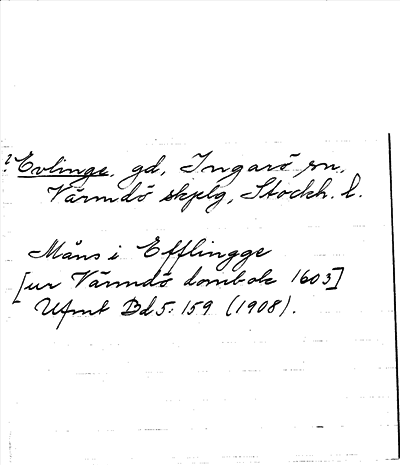 ? Evlinge, gd, Ingarö sn,
Värmdö skplg, Stockh. l.
Måns i Efflingge
[ur Värmdö dombok 1603]
Ufmt Bd 5: 159 (1908).